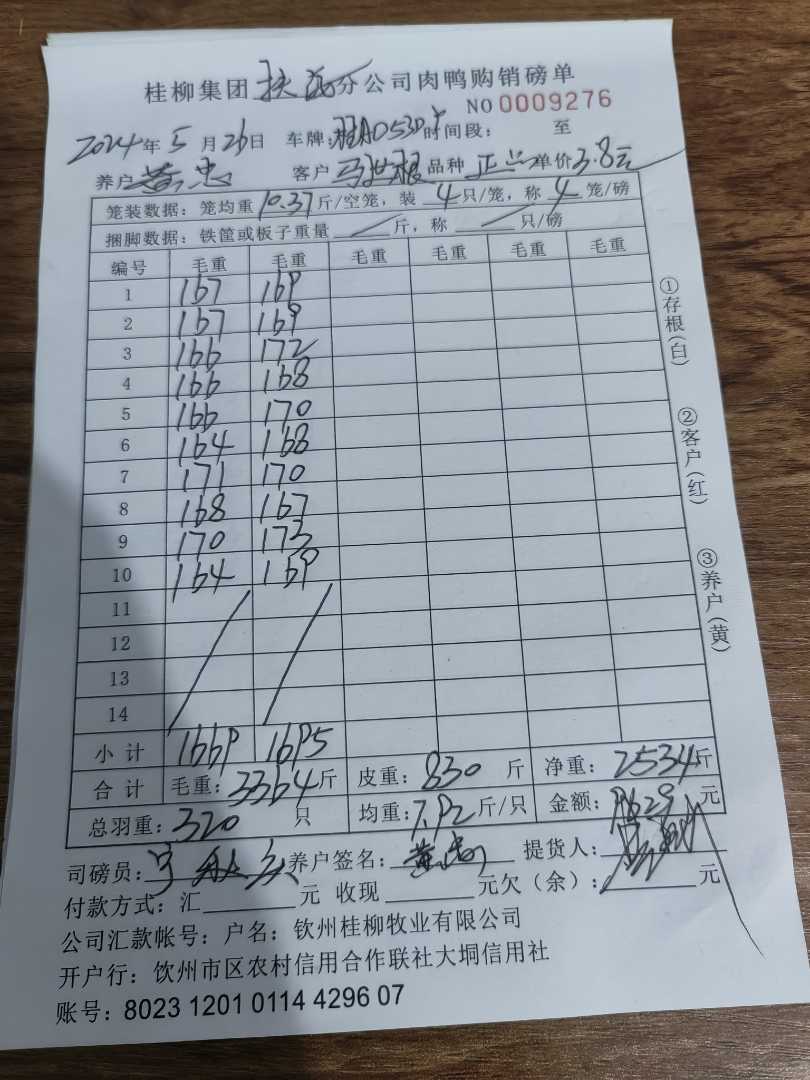 桂柳集团扶绥分公司肉鸭购销磅单
NO 0009276
2024年5月26日 车牌: 时间段: 至
养户黄忠 客户马世根品种正兰单价3.8元
笼装数据:笼均重10.37斤/空笼,装4只/笼,称4笼/磅
捆脚数据:铁筐或板子重量/斤,称/只/磅
编号 毛重 毛重 毛重 毛重 毛重 毛重
1 167 169
2 167 169
3 166 172
4 166 168
5 166 170
6 164 168
7 171 170
8 168 167
9 170 173
10 164 169
11
12
13
14
小计 1669 1695
合计 毛重:3364斤 皮重:830斤 净重:2534斤
总羽重:320只 均重:7.92斤/只 金额:9629元
司磅员: 养户签名:黄忠 提货人:
付款方式:汇 元 收现 元欠(余): 元
公司汇款帐号:户名:钦州桂柳牧业有限公司
开户行:饮州市区农村信用合作联社大垌信用社
账号:8023 1201 0114 4296 07
①存根(白)
②客户(红)
③养户(黄)